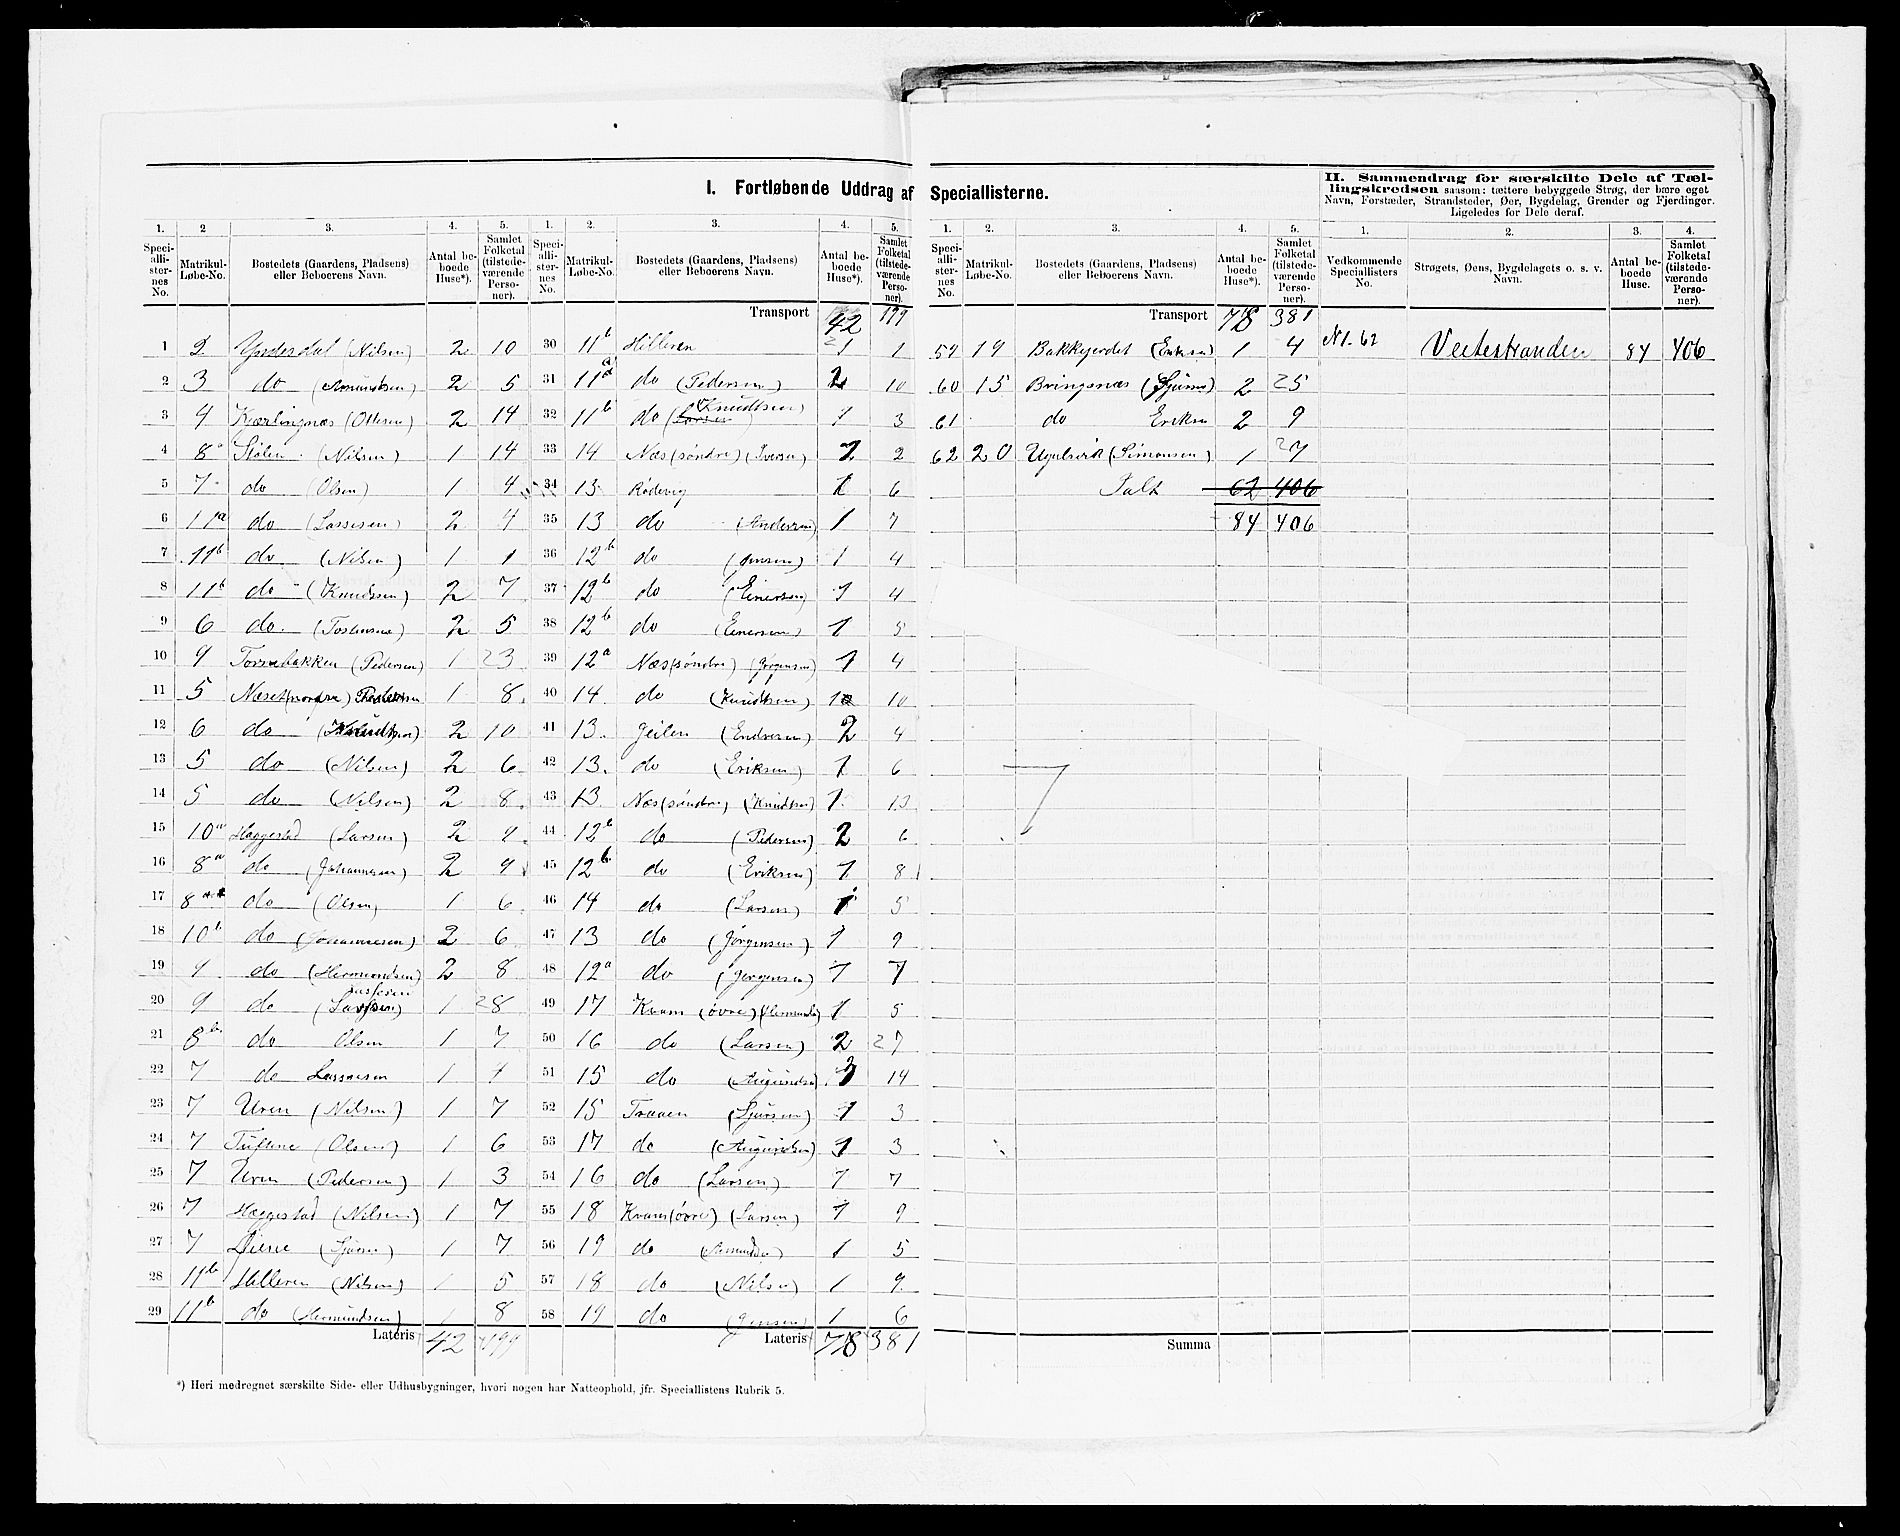 I. Fortløbende Uddrag af Speciallisterne.
II. Sammendrag for særskilte Dele af Tællingskredsen saasom: tættere bebyggede Strøg, der bære eget Navn, Forstæder, Strandsteder, Øer, Bygdelag, Grender og Fjerdinger. Ligeledes for Dele deraf.
1. 2 3. 4. 5. 1. 2. 3. 4. 5.
Speciallisternes No. Matrikul-Løbe-No. Bostedets (Gaardens, Pladsens) eller Beboerens Navn. Antal beboede Huse*). Samlet Folketal (tilstedeværende Personer). Speciallisternes No. Matrikul-Løbe-No. Bostedets (Gaardens, Pladsens) eller Beboerens Navn. Antal beboede Huse*). Samlet Folketal (tilstedeværende Personer).
Transport 42 199
1 2 Yndesdal (Nilsen) 2 10 30 11b Hilleren 1 1
2 3 do (Amundsen) 2 5 31 11a do (Pedersen) 2 10
3 4 Kjærlingnæs (Ottesen) 2 14 32 11b do (Larsen Knudtsen) 1 3
4 8a Stølen (Nilsen) 1 14 33 14 Næs (søndre) (Iversen) 1 2
5 7 do (Olsen) 1 4 34 13 Rødevig 1 6
6 11a do (Lassesen) 2 4 35 13 do (Andersen) 1 7
7 11b do (Nilsen) 1 1 36 12b do (Jensen) 1 4
8 11b do (Knudssen) 2 7 37 12b do (Einersen) 1 4
9 6 do 2 5 38 12b do (Einersen) 1 5
10 9 (Pedersen) 1 23 39 12a Næs (søndre) (Jørgensen) 1 4
11 5 Næset (nordre) Pedersen 1 8 40 14 do (Knudtsen) 1 10
12 6 do (Knudtsen) 2 10 41 13 Geilen (Endresen) 2 4
13 5 do (Nilsen) 2 6 42 13 do (Eriksen) 1 6
14 5 do (Nilsen) 2 8 43 13 Næs (søndre) (Knudtsen) 1 13
15 10a Haggestad (Larsen) 2 9 44 12b do (Pedersen) 2 6
16 8a do (Johannesen) 2 9 45 12b do (Eriksen) 1 8
17 8a do (Olsen) 1 6 46 14 do (Larsen) 1 5
18 10b do (Johannesen) 2 6 47 13 do (Jørgensen) 1 9
19 9 do (Hermundsen) 2 8 48 12a do (Jørgensen) 1 7
20 9 do (Lassesen) 1 28 49 17 Kvam (øvre) (Hermunds) 1 5
21 8b do Olsen 1 7 50 16 do (Larsen) 2 27
22 7 do Lassesen 1 51 15 do (Augundsen) 14
23 7 Uren (Nilsen) 1 7 52 15 Traaen (Sjursen) 1 3
24 7 Tuftene (Olsen) 1 6 53 17 do (Augundsen) 1 3
25 7 Uren (Pedersen) 1 3 54 16 do (Larsen) 1 7
26 7 Hæggestad (Nilsen) 1 7 55 18 Kvam (øvre) (Larsen) 1 9
27 7 1 7 56 19 do 1 5
28 11b Hilleren (Nilsen) 1 5 57 18 do (Nilsen) 1 9
29 11b do (Hermundsen) 1 8 58 19 do (Jensen) 1 6
Lateris 42 199 Lateris 78 381
*) Heri medregnet særskilte Side- eller Udhusbygninger, hvori nogen har Natteophold, jfr. Speciallistens Rubrik 5.
1. 2. 3. 4. 5. 1. 2. 3. 4.
Speciallisternes No. Matrikul-Løbe-No. Bostedets (Gaardens, Pladsens) eller Beboerens Navn. Antal beboede Huse*). Samlet Folketal (tilstedeværende Personer). Vedkommende Speciallisters No. Strøgets, Øens, Bygdelagets o. s. v. Navn. Antal beboede Huse. Samlet Folketal (tilstedeværende Personer).
Transport 78 381
59 19 Bakkejordet (Eriksen) 1 4 N1-62 Veitestranden 84 406
60 15 Bringsnæs (Sjursen) 2 25
61 do Eriksen 2 9
62 20 Ugulsvik (Simonsen) 1 27
Ialt 62 406
84 406
Summa